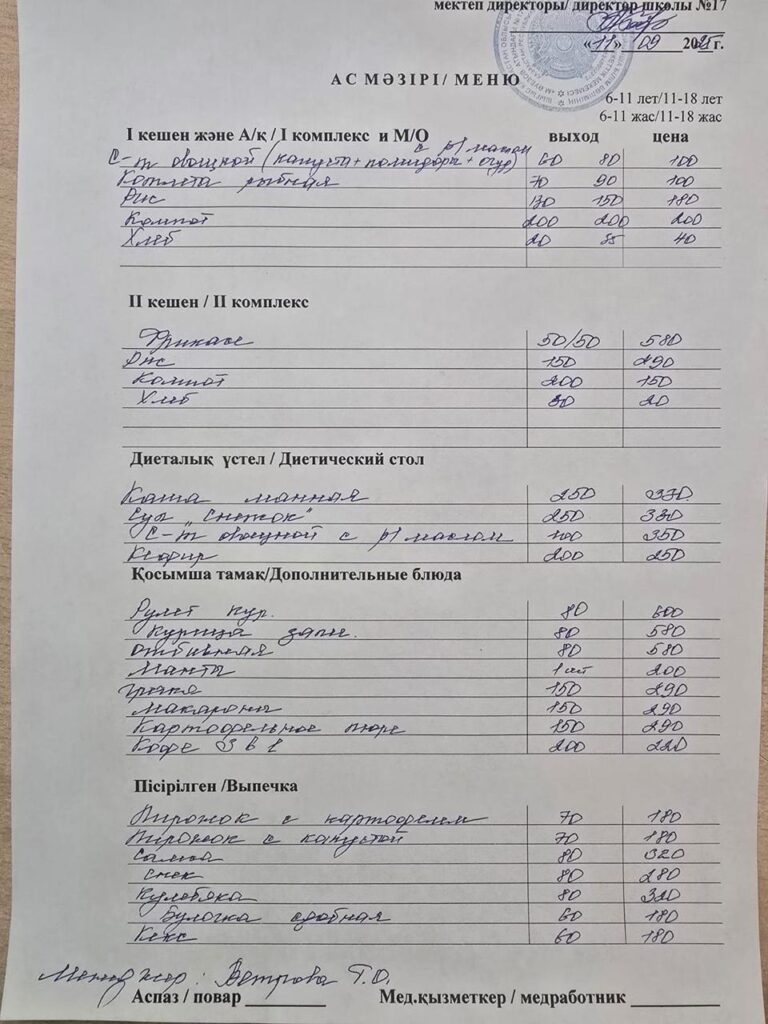 мектеп директоры/ директор школы №17
«11» 09 2025 г.
АС МӘЗІРІ/ МЕНЮ
6-11 лет/11-18 лет
6-11 жас/11-18 жас
І кешен және А/қ / І комплекс и М/О выход цена
С-т овощной (капуста+помидоры+огур) с р/маслом 60 80 100
Котлета рыбная 70 90 100
Рис 130 150 180
Компот 200 200 200
Хлеб 20 35 40
ІІ кешен / ІІ комплекс
Фрикасе 50/50 580
Рис 150 290
Компот 200 150
Хлеб 30 20
Диеталық үстел / Диетический стол
Каша манная 250 370
Суп „Снежок" 250 330
С-т овощной с р/маслом 100 350
Кефир 200 250
Қосымша тамақ/Дополнительные блюда
Рулет кур. 80 600
Курица запеч. 80 580
отбивная 80 580
Манты 1 шт 200
гречка 150 290
Макароны 150 290
Картофельное пюре 150 290
Кофе 3 в 1 200 220
Пісірілген /Выпечка
Пирожок с картофелем 70 180
Пирожок с капустой 70 180
Самса 80 320
Снек 80 280
Кулебяка 80 320
Булочка сдобная 60 180
Кекс 60 180
Менеджер: Ветрова Т.О.
Аспаз / повар Мед.қызметкер / медработник